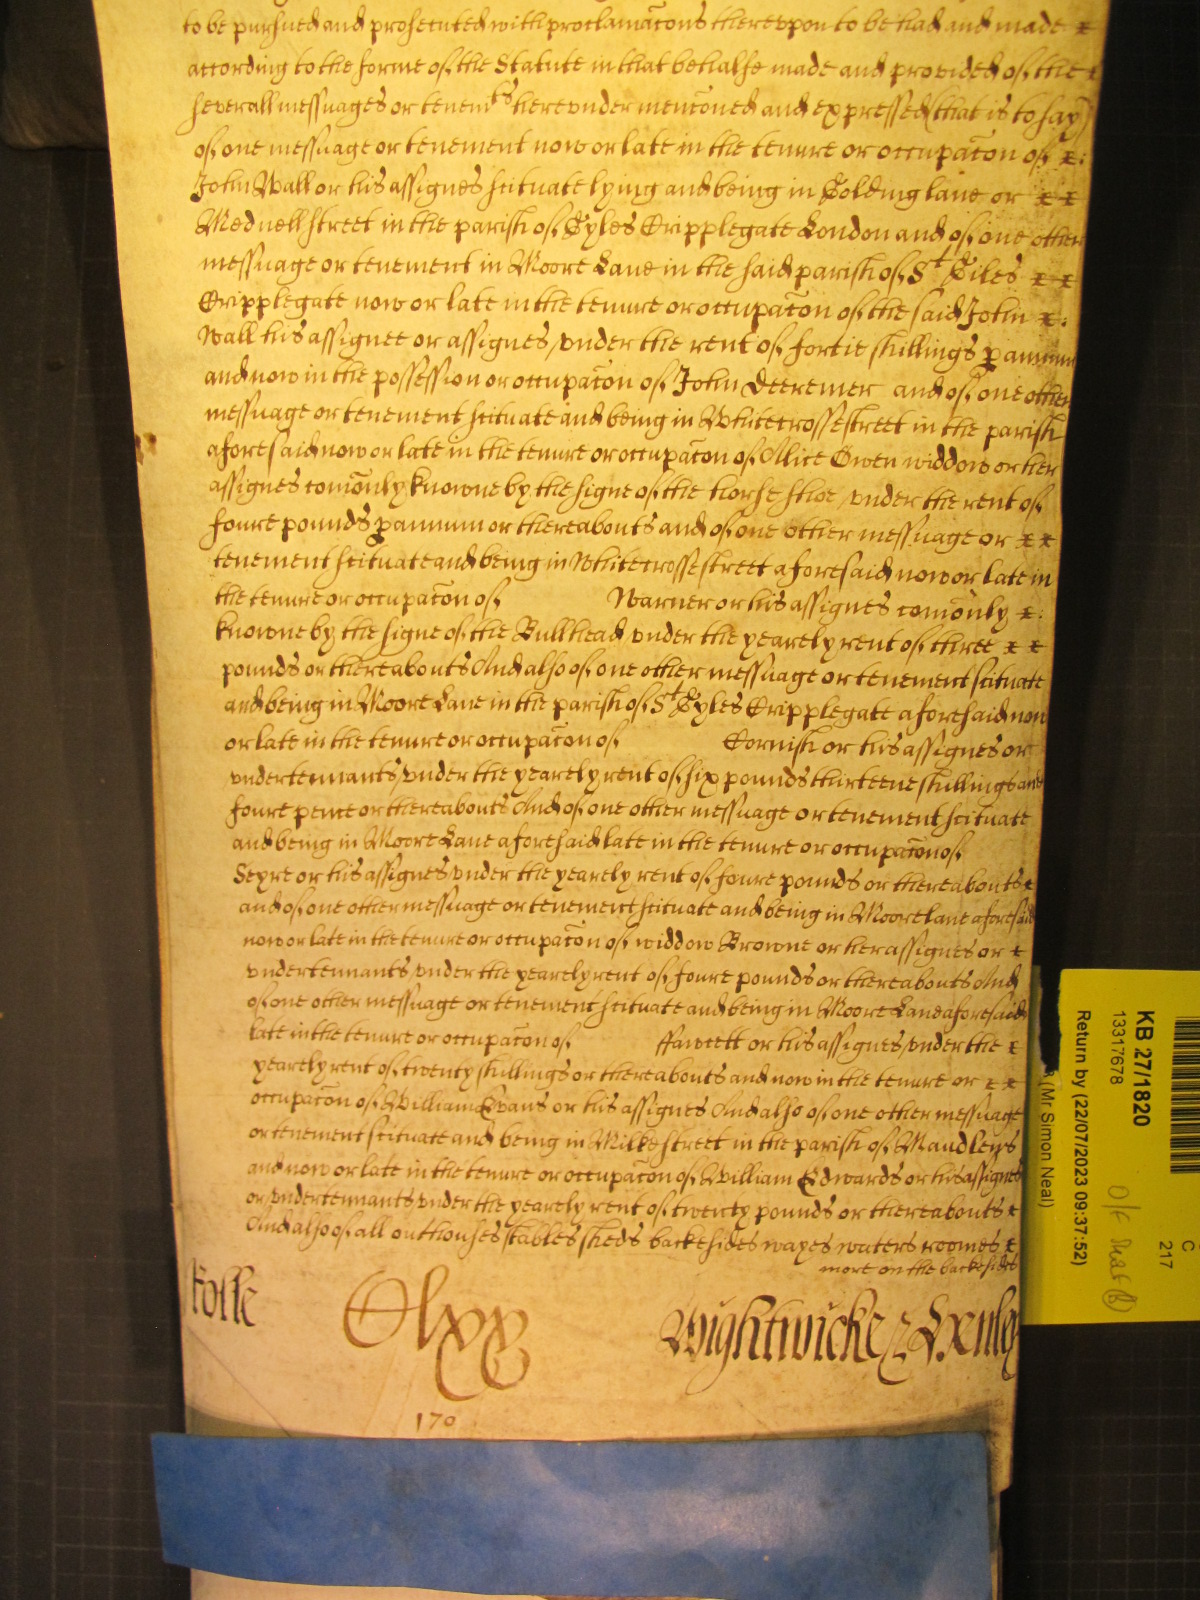 to be pursued and prosecuted with proclamac̃ons therevpon to be had and made x
according to the forme of the Statute in that behalfe made and provided of the x
severall messuages or tenemts herevnder menc̃oned and expressed (that is to say)
of one messuage or tenement now or late in the tenure or occupac̃on of x:
John Wall or his assignes scituate lying and being in Golding lane or x x
Mednell street in the parish of Gyles Cripplegate London and of one other
messuage or tenement in Moore Lane in the said parish of St Giles x x
Cripplegate now or late in the tenure or occupac̃on of the said John x:
Wall his assignee or assignes, vnder the rent of fortie shillings p annum
and now in the possession or occupac̃on of John Deeremer and of one other
messuage or tenement scituate and being in Whitecrosse street in the parish
aforesaid now or late in the tenure or occupac̃on of Alice Owen widdow or her
assignes com̃only knowne by the signe of the horse shoe, vnder the rent of
foure pounds p annum or thereabouts and of one other messuage or x x
tenement scituate and being in Whitecrosse street aforesaid now or late in
the tenure or occupac̃on of Warner or his assignes com̃only x:
knowne by the signe of the Bull head vnder the yearely rent of three x x
pounds or thereabouts And also of one other messuage or tenement scituate
and being in Moore Lane in the parish of St Gyles Cripplegate aforesaid now
or late in the tenure or occupac̃on of Cornish or his assignes or
vndertennants, vnder the yearely rent of six pounds thirteene shillings and
foure pence or thereabouts And of one other messuage or tenement scituate
and being in Moore Lane aforesaid late in the tenure or occupac̃on of
Seyre or his assignes vnder the yearely rent of foure pounds or thereabouts x
and of one other messuage or tenement scituate and being in Moore lane aforesaid
now or late in the tenure or occupac̃on of widdow Browne or her assignes or x
vndertennants vnder the yearely rent of foure pounds or thereabouts And
of one other messuage or tenement scituate and being in Moore Lane aforesaid
late in the tenure or occupac̃on of ffawcett or his assignes, vnder the x
yearely rent of twenty shillings or thereabouts and now in the tenure or x x
occupac̃on of William Evans or his assignes And also of one other messuage
or tenement scituate and being in Milke street in the parish of Maudleys
and now or late in the tenure or occupac̃on of William Edwards or his assignes
or vndertennants vnder the yearely rent of twenty pounds or thereabouts x
And also of all outhouses stables sheds backesides wayes waters roomes x
more on the backeside
Rolle Clxx Wightwicke &
170
KB 27/1820
13317678
Return by (22/07/2023 09:37:52)
(Mr Simon Neal)
C
217